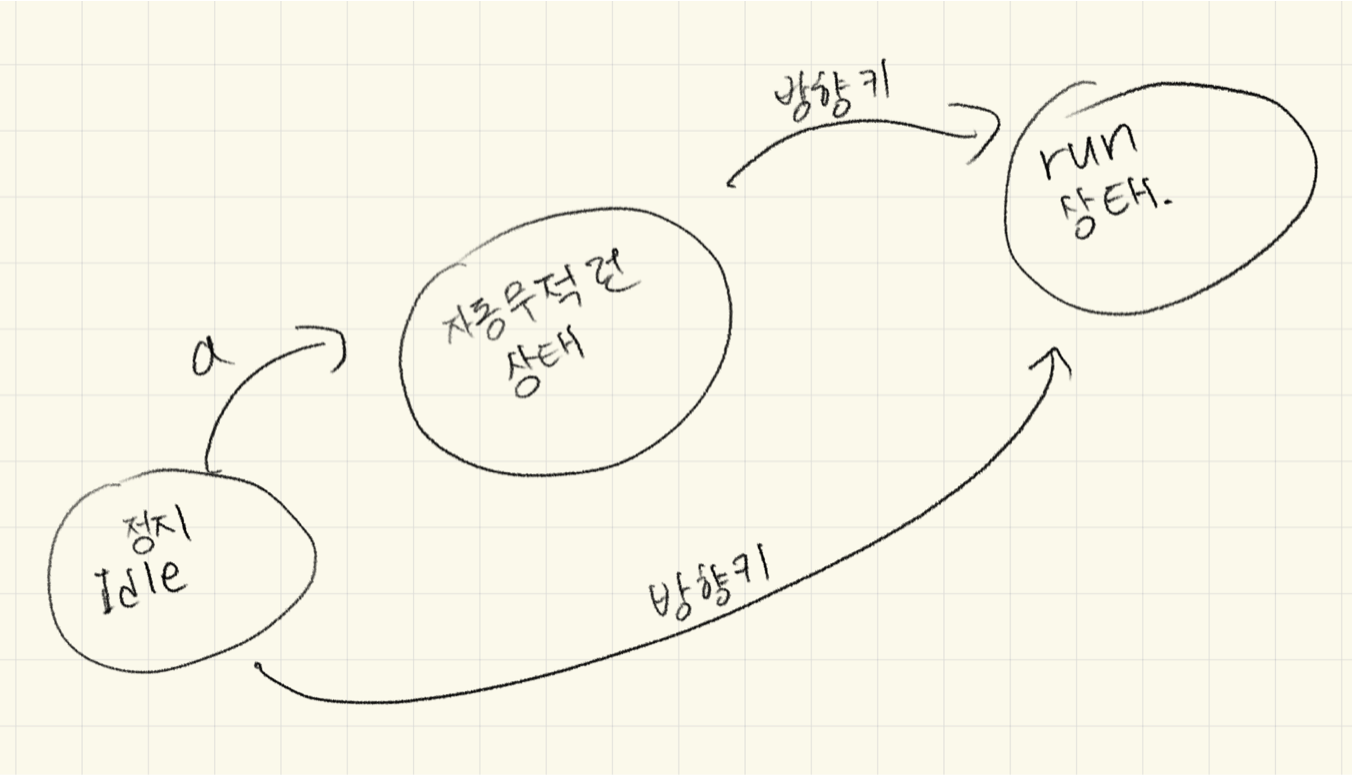 방향키
run
상태.
자동무적 런
상태
a
정지
Idle
방향키